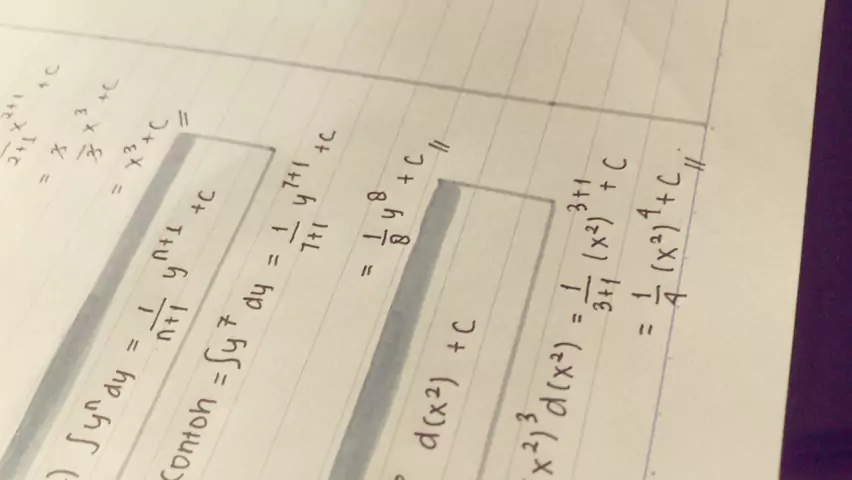 1/2+1 x²⁺¹ + C
= 3/3 x³ + C
= x³ + C
) ∫yⁿ dy = 1/n+1 yⁿ⁺¹ + C
Contoh = ∫y⁷ dy = 1/7+1 y⁷⁺¹ + C
= 1/8 y⁸ + C //
d(x²) + C
x²)³ d(x²) = 1/3+1 (x²)³⁺¹ + C
= 1/4 (x²)⁴ + C //